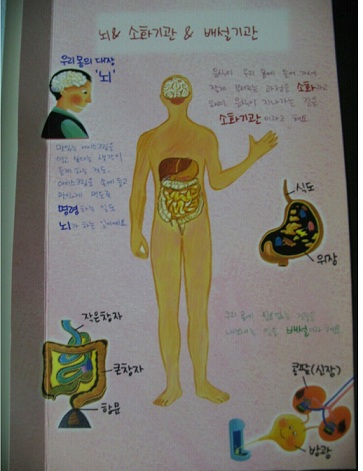 뇌 & 소화기관 & 배설기관
우리 몸의 대장
'뇌'
음식이 우리 몸에 들어가서
잘게 부서지는 과정을 소화라고
해요. 음식이 지나가는 길을
소화기관이라고 해요.
맛있는 아이스크림을
먹고 싶다는 생각이
들게 하는 것도,
아이스크림을 손에 들고
맛있게 먹도록
명령하는 것도
뇌가 하는 일이에요.
식도
위장
작은창자
큰창자
항문
우리 몸에 필요없는 것들을
내보내는 일을 배설이라 해요.
콩팥(신장)
방광